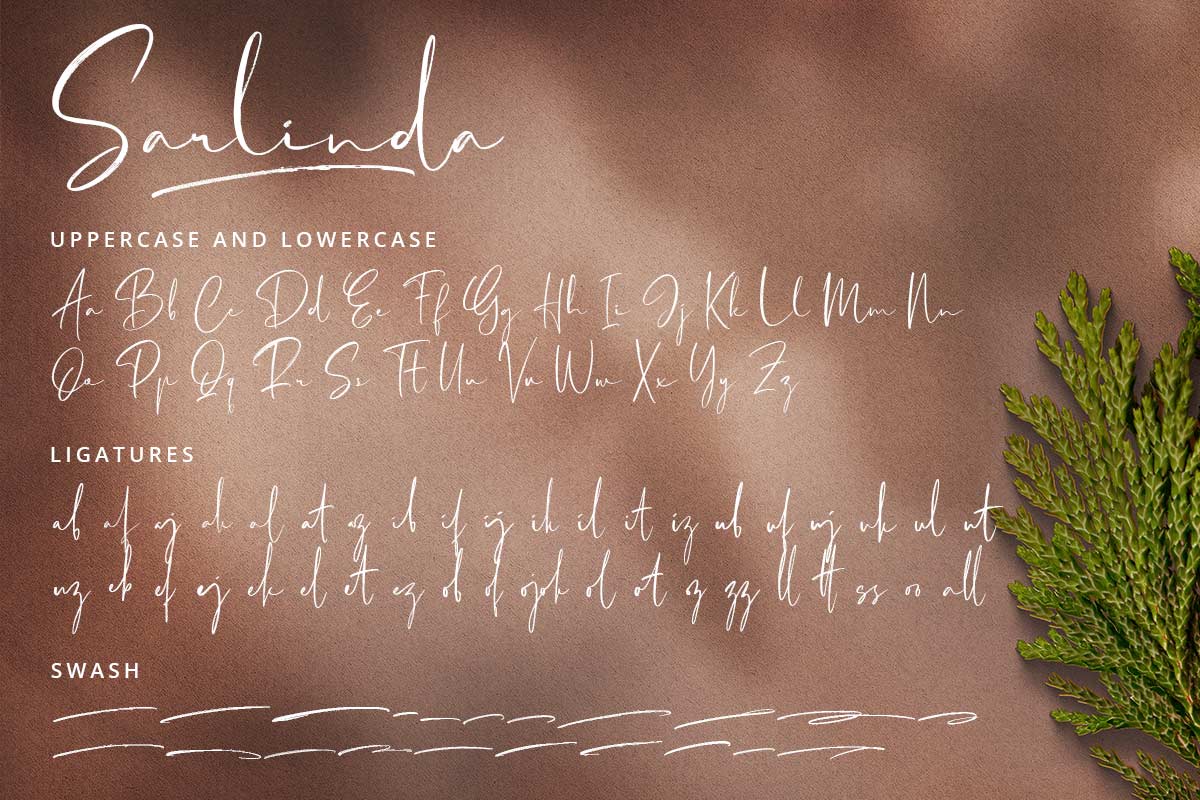 Sarlinda
UPPERCASE AND LOWERCASE
Aa Bb Cc Dd Ee Ff Gg Hh Ii Jj Kk Ll Mm Nn
Oo Pp Qq Rr Ss Tt Uu Vv Ww Xx Yy Zz
LIGATURES
ab af aj ak al at az ib if ij ik il it iz ub uf uj uk ul ut
uz eb ef ej ek el et ez ob of oj ok ol ot oz zz ll tt ss oo all
SWASH